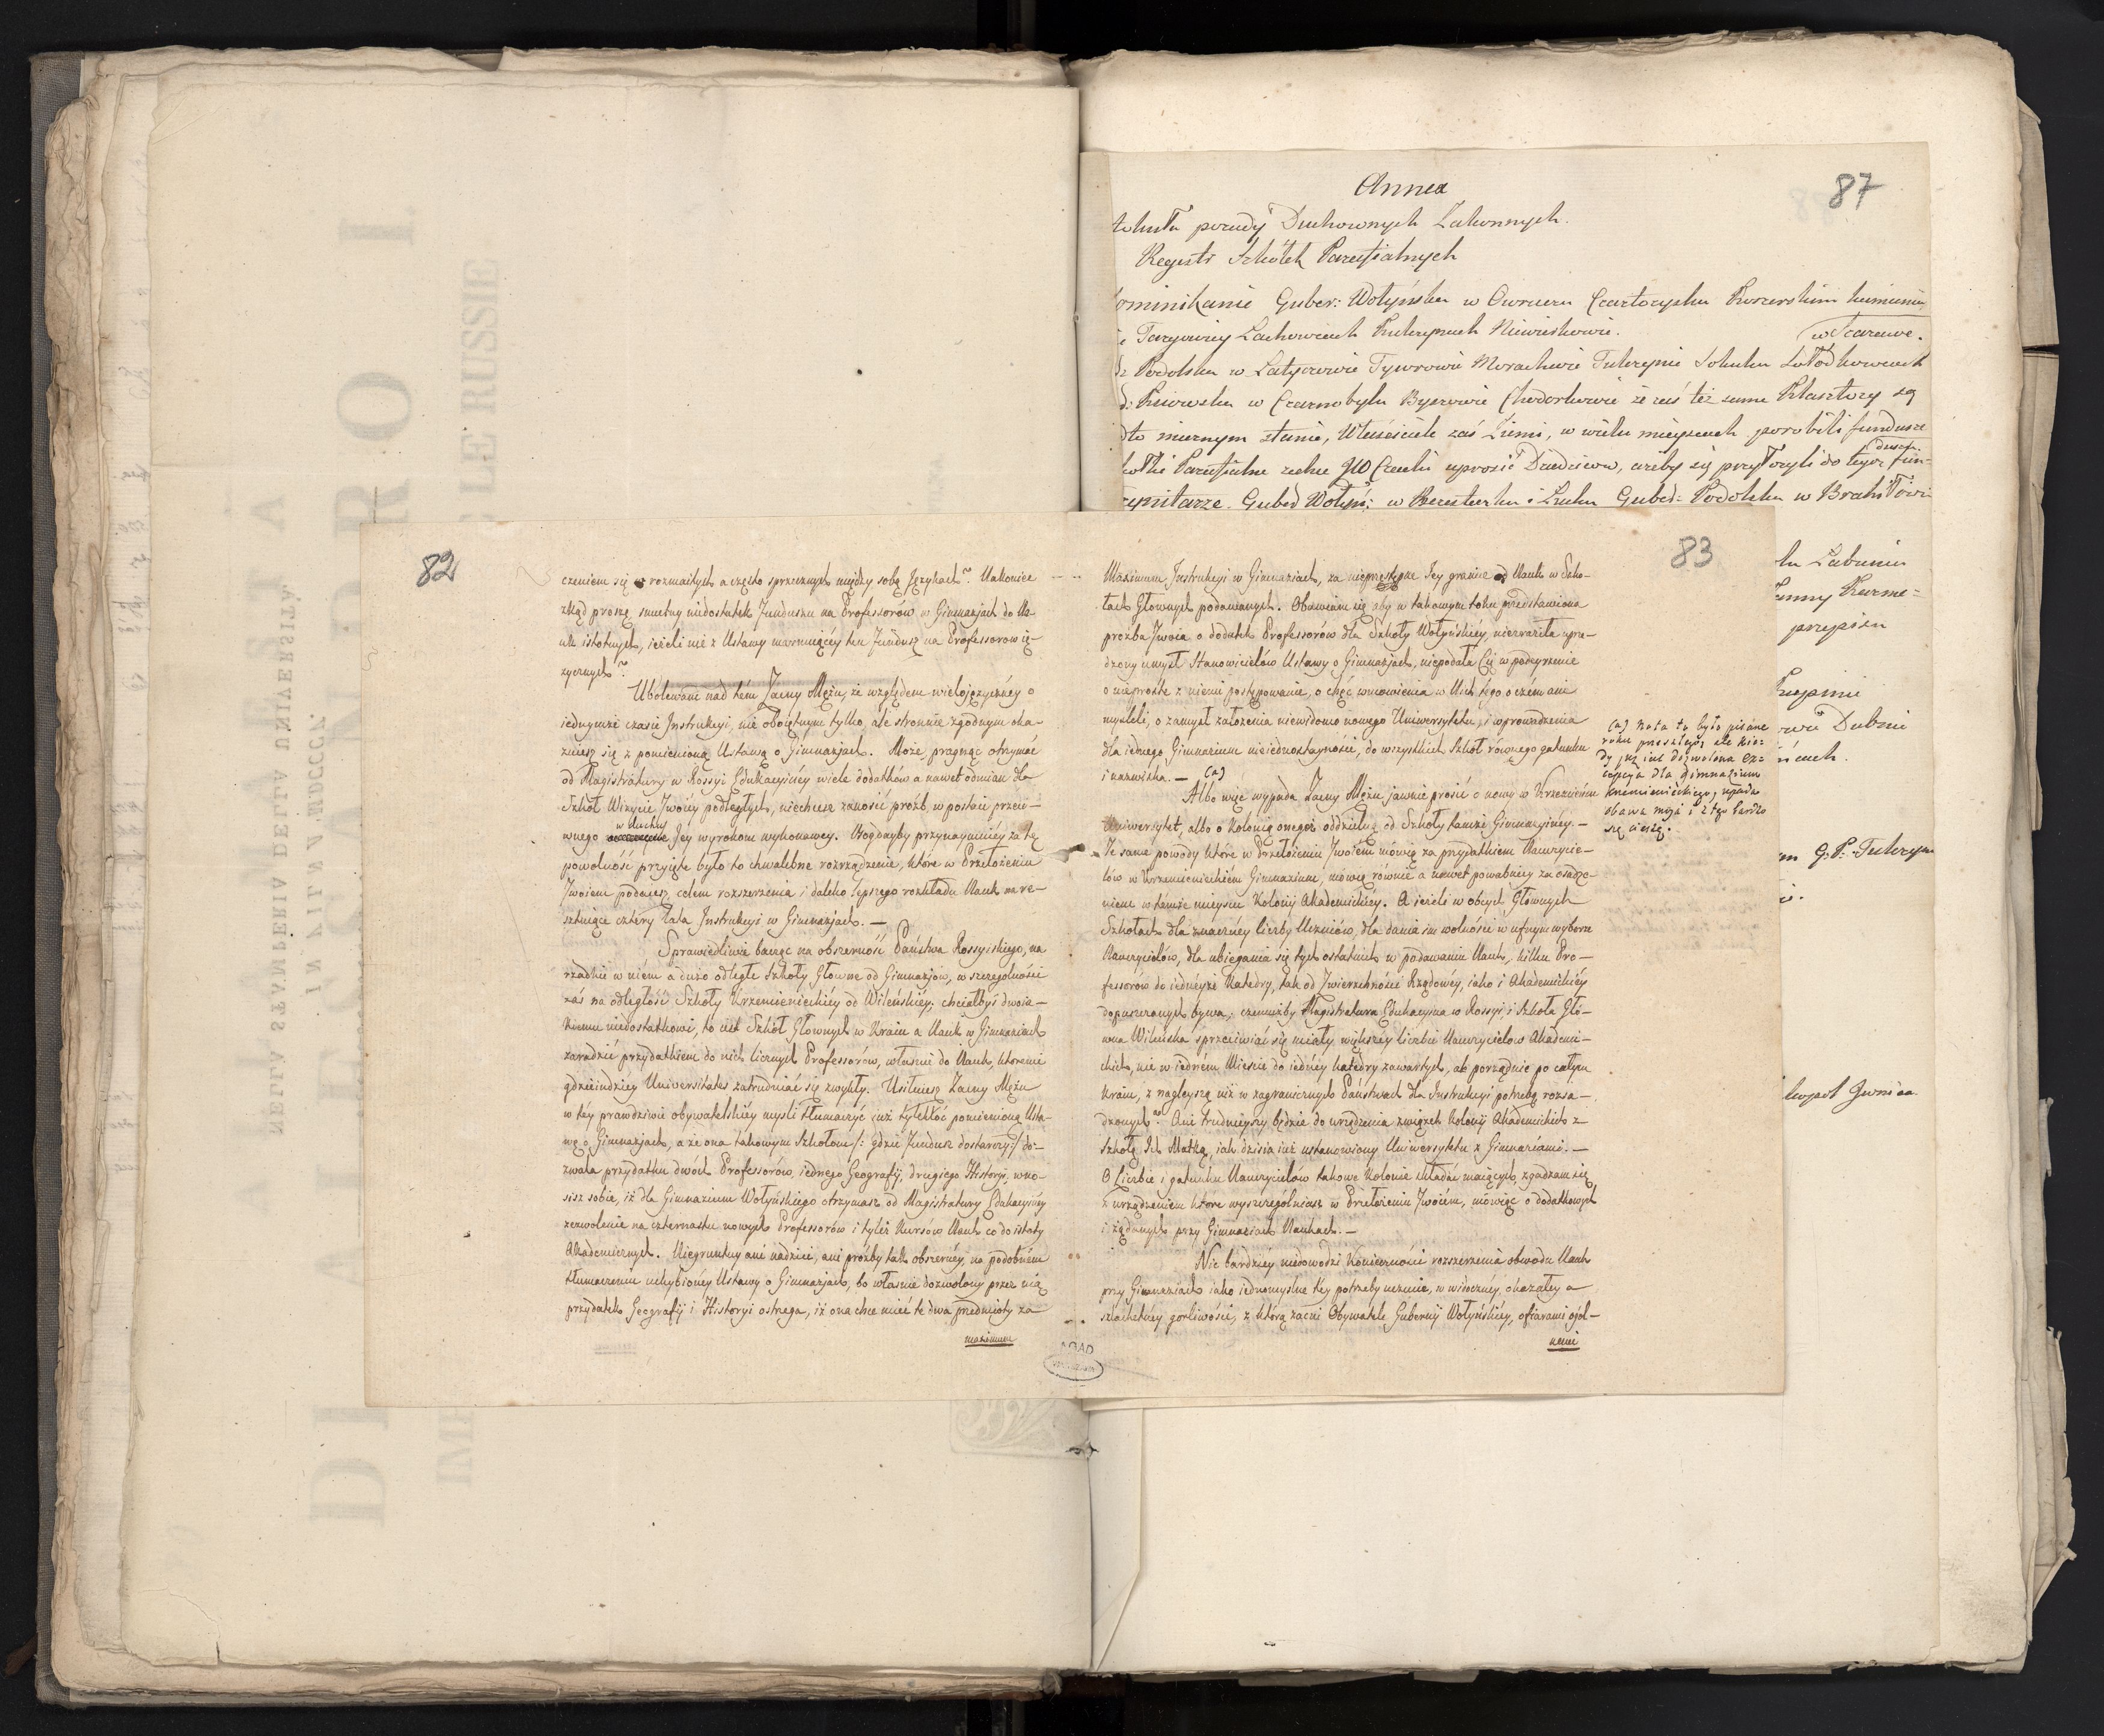 82
czeniem się w rozmaitych a często sprzecznych między sobą Językach? Nakoniec
zkąd proszę smutny niedostatek Funduszu na Professorów w Gimnazjach do Na-
uk istotnych, ieżeli nie z Ustawy marnuiącey ten Fundusz na Professorow ię-
zycznych?
Ubolewam nad tém Zacny Mężu, że względem wielojęzyczney o
iednymże czasie Instrukcyi, nie oboiętnym tylko, ale stronnie zgodnym oka-
zuiesz się z pomienioną Ustawą o Gimnazjach. Może, pragnąc otrzymać
od Magistratury w Rossyi Edukacyiney wiele dodatków a nawet odmian dla
Szkół Wizycie Twoiey podległych, niechcesz zanosić próźb, w postaci przeci-
wnego w duchu Jey wyrokom wykonawcy. Bogdayby przynaymniéy za tę
powolność przyięte było to chwalebne rozrządzenie, które w Przełożeniu
Twoiem podaiesz, celem rozszerzenia i daleko lepszego rozkładu Nauk na re-
sztuiące cztery lata Instrukcyi w Gimnazjach. —
Sprawiedliwie bacząc na obszerność Państwa Rossyiskiego, na
rzadkie w niem a dużo odległe Szkoły Główne od Gimnazjów, w szczególności
zaś na odległość Szkoły Krzemienieckiéy od Wileńskiéy; chciałbyś dwoia-
kiemu niedostatkowi, to iest Szkół Głownych w Kraiu a Nauk w Gimnaziach
zaradzić przydatkiem do nich licznych Professorów, właśnie do Nauk, któremi
gdzieindziéy Universitates zatrudniać się zwykły. Usiłuiesz Zacny Mężu
w téy prawdziwie obywatelskiéy myśli tłumaczyć iuż tylekroć pomienioną Usta-
wę o Gimnazjach, a że ona takowym Szkołom /: gdzie Fundusz dostarczy :/ do-
zwala przydatku dwóch Professorów, iednego Geografij, drugiego Historyi, wno-
sisz sobie, iż dla Gimnazium Wołyńskiego otrzymasz od Magistratury Edukacyiney
zezwolenie na czternastu nowych Professorów i tyleż Kursów Nauk co do istoty
Akademicznych. Niegruntuy ani nadziei, ani proźby tak obszernéy, na podobném
tłumaczeniu uchybionéy Ustawy o Gimnazjach, bo właśnie dozwolony przez nią
przydatek Geografij i Historyi ostrzega, iż ona chce mieć te dwa przedmioty za
maximum
83
Maximum Instrukcyi w Gimnaziach, za nieprzestępne Jey granice od Nauk w Szko-
łach Głownych podawanych. Obawiam się aby w takowym toku przedstawiona
proźba Twoia o dodatek Professorów dla Szkoły Wołyńskiéy, niezraziła uprze-
dzony umysł Stanowicielów Ustawy o Gimnazjach, niepodała Cię w podeyrzenie
o nieproste z niemi postępowanie, o chęć wmówienia w Nich tego o czém ani
myśleli, o zamysł założenia niewidomo nowego Uniwersytetu, i wprowadzenia
dla iednego Gimnazium nieiednostayności, do wszystkich Szkół równego gatunku
i nazwiska. — (a)
(a) Nota to było pisane
roku przeszłego; ale kie-
dy już iest dozwolona ex-
cepcya dla gimnazium
Krzemienieckiego, upada
obawa moja i z tego bardzo
się cieszę.
Albo więc wypada Zacny Mężu jawnie prosić o nowy w Krzemieńcu
Uniwersytet, albo o Kolonią onegoż oddzielną od Szkoły tamże Gimnazyiney. —
Te same powody które w Przełożeniu Twoiém mówią za przydatkiem Nauczycie-
lów w Krzemienieckiém Gimnazium, mówią równie a nawet poważniéy za osadze-
niem w tamże mieyscu Kolonij Akademickiéy. A ieżeli w obcych Głownych
Szkołach dla znacznéy liczby Uczniów, dla dania im wolności w ufnym wyborze
Nauczycielów, dla ubiegania się tych ostatnich w podawaniu Nauk, kilku Pro-
fessorów do iednéyże Katedry, tak od Zwierzchności Rządowéy, iako i Akademickiéy
dopuszczonych bywa, czemużby Magistratura Edukacyina w Rossyi, i Szkoła Głó-
wna Wileńska sprzeciwiać się miały, większéy liczbie Nauczycielow Akademi-
ckich, nie w iedném Mieście do iednéy katedry zawartych, ale porządnie po całym
Kraiu, z nagleyszą niż w zagranicznych Państwach dla Instrukcyi potrzebą rozsa-
dzonych? Ani trudnieyszy będzie do urządzenia związek Kolonij Akademickich z
Szkołą Ich Matką, iak dzisia iuż ustanowiony Uniwersytetu z Gimnaziami. —
O Liczbie i gatunku Nauczycielow takowe Kolonie składać maiących, zgadzam się
z urządzeniem które wyszczególniasz w Przełożeniu Twoiém, mówiąc o dodatkowych
i żądanych przy Gimnaziach Naukach. —
Nic bardziey niedowodzi Konieczności rozszerzenia obwodu Nauk
przy Gimnaziach iako iednomyślne téy potrzeby uczucie, w widoczney, okazałey a
szlachetnéy gorliwości, z którą zacni Obywatele Gubernij Wołyńskiéy, ofiarami ogól-
nemi
87
Annex
Duchownych Zakonnych.
Regestr Szkółek Parafialnych
Guber: Wołyńska w Owruczu Czartorysku
w Szarawce.
Podolska w Latyczowie Tywrowie Morachwie Tulczynie Sokulcu
Kiiowska w Czarnobylu Byszowie Chodorkowie że zaś też same Klasztory są
miernym stanie, Właściciele zaś Ziemi, w wielu mieyscach porobili fundusze
Parafialne zechce JW Czacki uprosić Dziedziców, ażeby się przyłożyli do tego fun-
duszu.
Guber: Wołyń: w Beresteczku i Lucku Guber: Podolska w Brahiłowie
Labuniu
przepisu
Dubnie
G: P: Tulczyn
AGAD